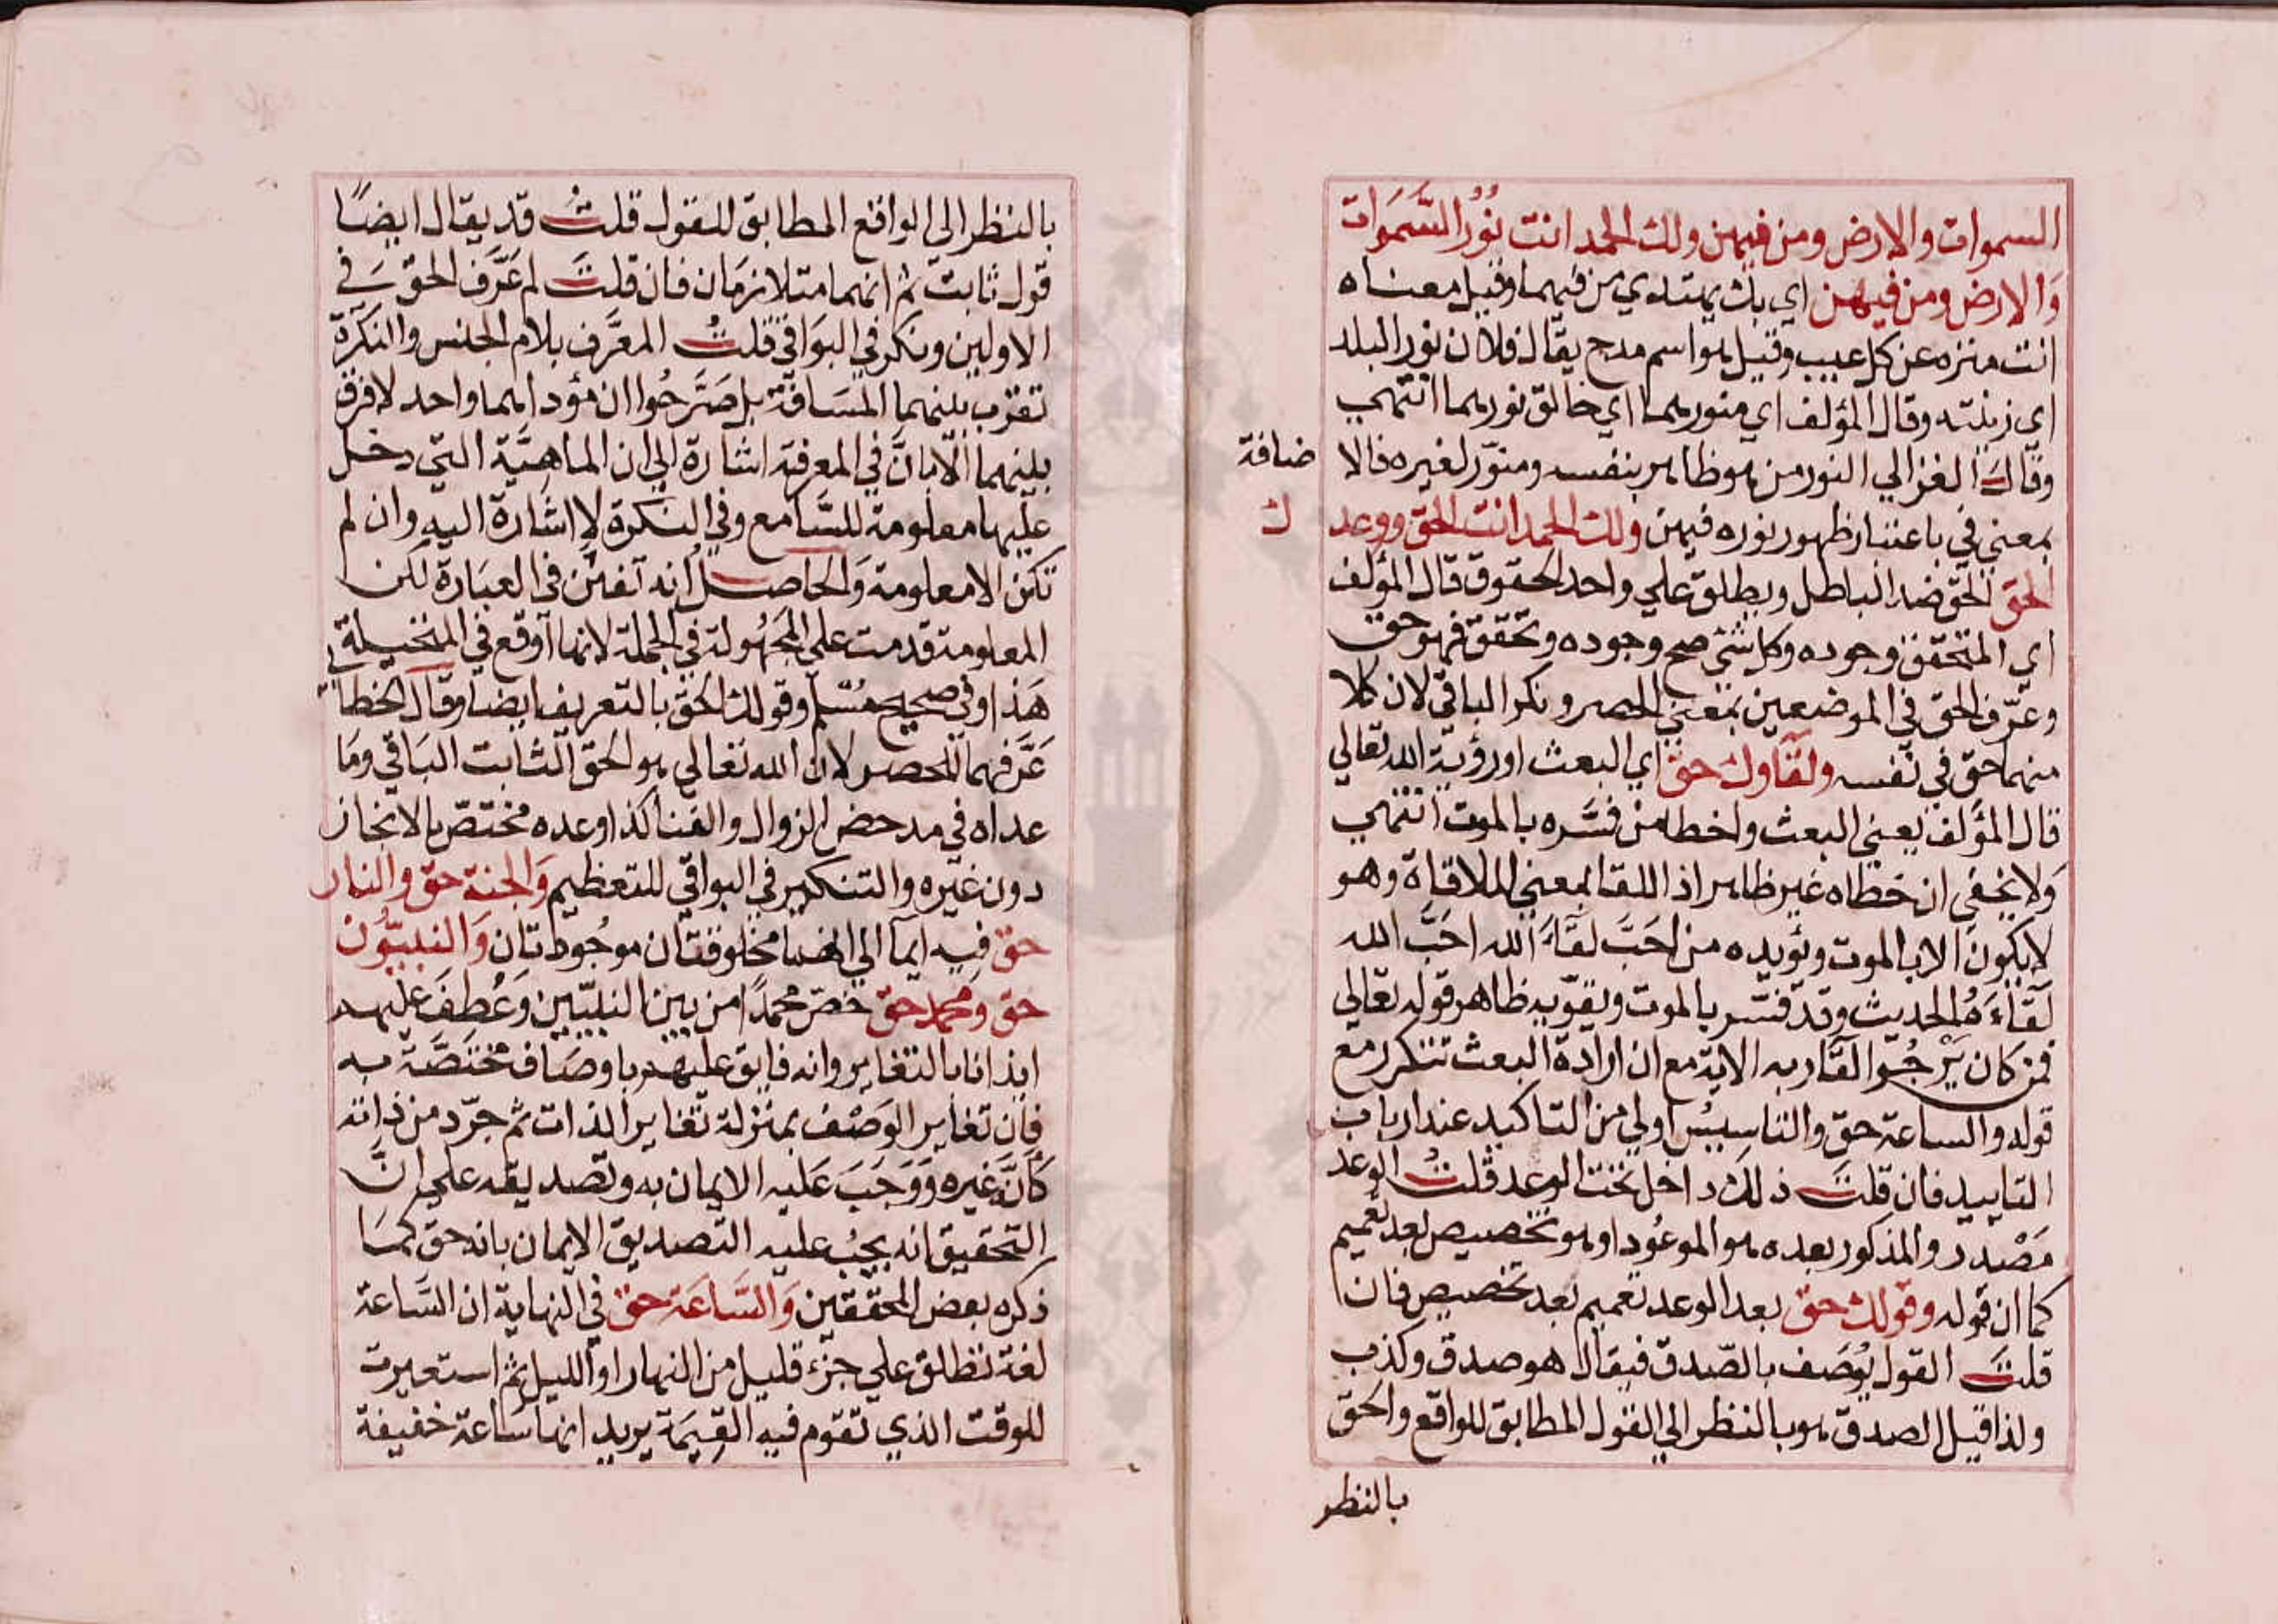 السموات والارض ومن فيهن ولك الحمد انت نُوْرُ السَّمَوات
وَالارض ومن فيهن اي بك يهتدي من فيهما وقيل معناه
انت منزه عن كل عيب وقيل هو اسم مدح يقال فلان نور البلد
اي زينته وقال المؤلف اي منورهما اي خالق نورهما انتهى
وقال الغزالي النور من هو ظاهر بنفسه ومنوّر لغيره فالا ضافة
بمعنى في باعتبار ظهور نوره فيهن ولك الحمد انت الحق ووعد ك
الحق الحق ضد الباطل ويطلق علي واحد الحقوق قال المؤلف
اي المتحقق وجوده وكل شئ صح وجوده وتحقق فهو حق
وعرّف الحق في الموضعين بمعنى الحصر ونكر الباقي لان كلا
منهما حق في نفسه ولقآوك حق اي البعث او رؤية الله تعالي
قال المؤلف يعني البعث واخطا من فسَّره بالموت انتهى
وَلا يخفي ان خطاه غير ظاهر اذ اللقا بمعنى الملاقاة وهو
لا يكون الا بالموت ويؤيده من احَبَّ لقآءَ الله احَبَّ الله
لقآءَهُ الحديث وقد فسّر بالموت ويقوّيه ظاهر قوله تعالي
فمن كان يَرْجُوا لقآ ربه الاية مع ان ارادة البعث تتكرر مع
قوله والساعة حق والتاسيسُ اولي من التاكيد عند ارباب
التاييد فان قلتَ ذلك داخل تحت الوعد قلتُ الوعد
مَصْدر والمذكور بعده هو الموعُود او هو تخصيص بعد تعميم
كما ان قوله وقولك حق بعد الوعد تعميم بعد تخصيص فان
قلتَ القول يُوصَف بالصّدق فيقال هو صدق وكذب
ولذا قيل الصدق هو بالنظر الي القول المطابق للواقع والحق
بالنظر
بالنظر الي الواقع المطابق للقول قلتُ قد يقال ايضًا
قول ثابت ثم انهما متلازمَان فان قلتَ لم عَرَّف الحق في
الاولين ونكر في البوَاقي قلتُ المعرَّف بلام الجنس والنكرَة
تقرب بينهما المسَافة بل صَرَّحُوا ان مؤداهما واحد لا فرق
بينهما الّا بانَّ في المعرفة اشارة الي ان الماهيَّة التي دخل
عليها معلومة للسَّامع وفي النكرة لا اشارة اليه وان لم
تكن الا معلومة وَالحاصل انه تفنن في العبَارة لكن
المعلومة قدمت على المجهُولة في الجملة لانها اوقع في المخيلة
هَذا وفي صحيح مُسْلم وقولك الحق بالتعريف ايضا وقال الخطا بي
عَرَّفهما للحصر لان الله تعالي هو الحق الثابت البَاقي ومَا
عداه في مدحض الزوال والفنا كذا وعده مختصّ بالانجاز
دون غيره والتنكير في البواقي للتعظيم وَالجنة حق والنار
حق فيه ايمآ الي انهما مخلوقتان موجُودتان وَالنبيّوُن
حق ومحمد حق خصّ محمدًا من بين النبيّين وَعُطِفَ عليهم
ايذانا بالتغاير وانه فايق عليهم باوصَاف مختصَّة به
فان تغاير الوَصْف بمنزلة تغاير الذات ثم جرّد من ذاته
كانَّه غيره وَوَجَبَ عَليه الايمان به وتصديقه علي انَّ
التحقيق انه يجبُ عليه التصديق الايمان بانه حق كمَا
ذكره بعض المحققين وَالسَّاعَة حق في النهاية ان السَّاعة
لغة تطلق علي جزء قليل من النهار او الليل ثم استعيرت
للوقت الذي تقوم فيه القيمَة يريد انها سَاعة خفيفة